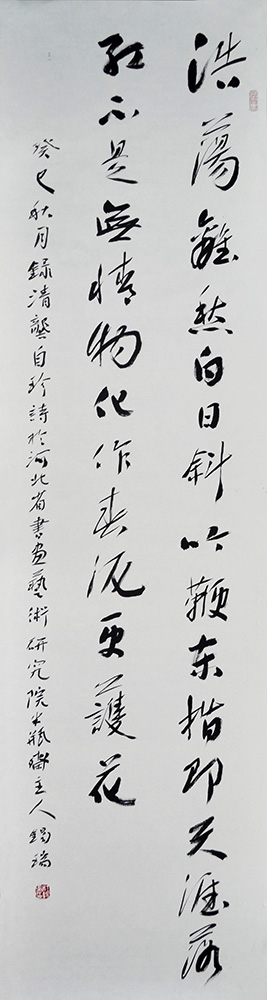 浩蕩離愁白日斜吟鞭东指即天涯落
红不是無情物化作春泥更護花
癸巳秋月録清龔自珍詩於河北省書畫藝術研究院大瓶齋主人錫瑞